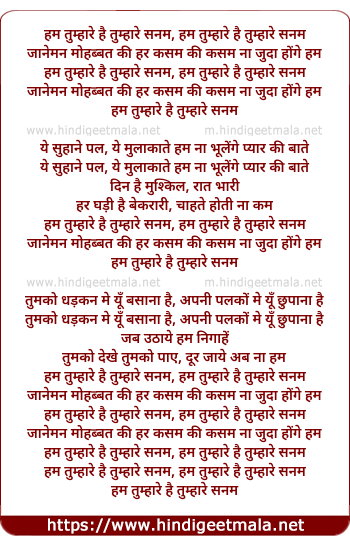 हम तुम्हारे है तुम्हारे सनम, हम तुम्हारे है तुम्हारे सनम
जानेमन मोहब्बत की हर कसम की कसम ना जुदा होंगे हम
हम तुम्हारे है तुम्हारे सनम, हम तुम्हारे है तुम्हारे सनम
जानेमन मोहब्बत की हर कसम की कसम ना जुदा होंगे हम
हम तुम्हारे है तुम्हारे सनम
www.hindigeetmala.net m.hindigeetmala.net
ये सुहाने पल, ये मुलाकाते हम ना भूलेंगे प्यार की बाते
ये सुहाने पल, ये मुलाकाते हम ना भूलेंगे प्यार की बाते
दिन है मुश्किल, रात भारी
हर घड़ी है बेकरारी, चाहते होती ना कम
हम तुम्हारे है तुम्हारे सनम, हम तुम्हारे है तुम्हारे सनम
जानेमन मोहब्बत की हर कसम की कसम ना जुदा होंगे हम
हम तुम्हारे है तुम्हारे सनम
www.hindigeetmala.net m.hindigeetmala.net
तुमको धड़कन मे यूँ बसाना है, अपनी पलकों मे यूँ छुपाना है
तुमको धड़कन मे यूँ बसाना है, अपनी पलकों मे यूँ छुपाना है
जब उठाये हम निगाहें
तुमको देखे तुमको पाए, दूर जाये अब ना हम
हम तुम्हारे है तुम्हारे सनम, हम तुम्हारे है तुम्हारे सनम
जानेमन मोहब्बत की हर कसम की कसम ना जुदा होंगे हम
हम तुम्हारे है तुम्हारे सनम, हम तुम्हारे है तुम्हारे सनम
जानेमन मोहब्बत की हर कसम की कसम ना जुदा होंगे हम
हम तुम्हारे है तुम्हारे सनम, हम तुम्हारे है तुम्हारे सनम
हम तुम्हारे है तुम्हारे सनम, हम तुम्हारे है तुम्हारे सनम
हम तुम्हारे है तुम्हारे सनम
https://www.hindigeetmala.net